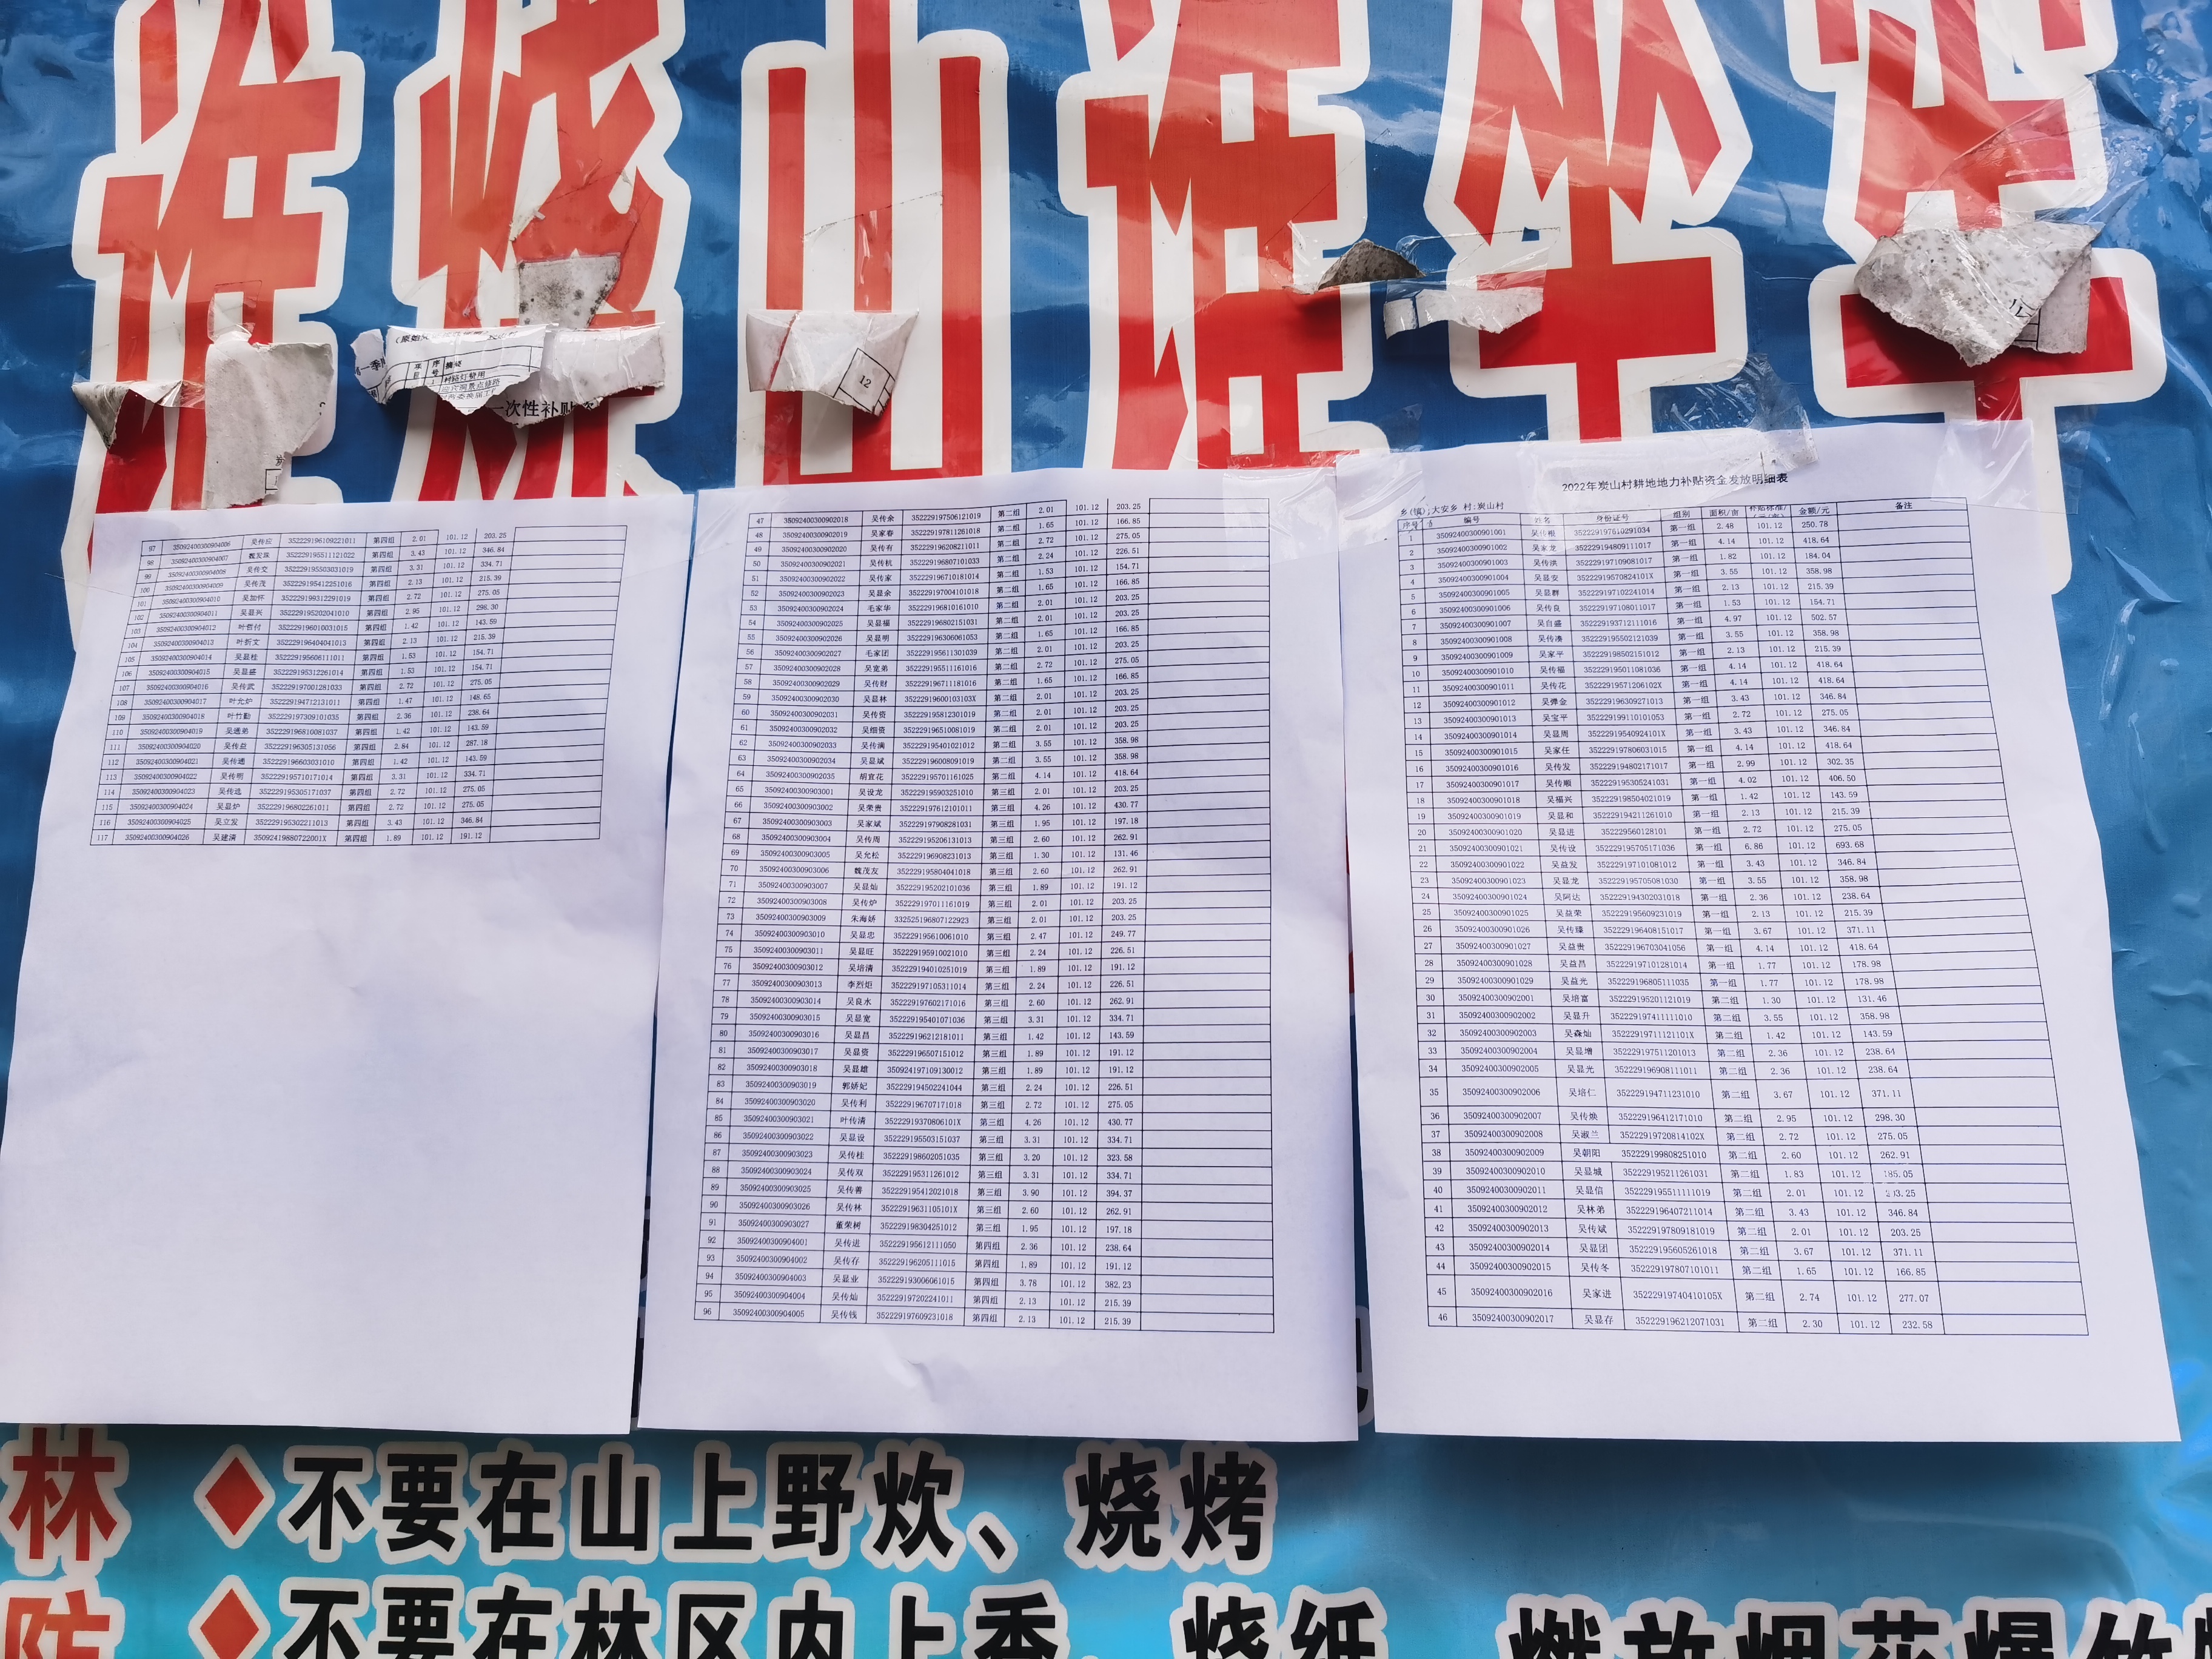 谁烧山谁坐牢
一次性补贴
12
2022年炭山村耕地地力补贴资金发放明细表
乡(镇):大安乡 村:炭山村
序号 编号 姓名 身份证号 组别 面积/亩 金额/元 备注
1 35092400300901001 吴传根 第一组 2.48 101.12 250.78
2 35092400300901002 吴家龙 352229194809111017 第一组 4.14 101.12 418.64
3 35092400300901003 吴传洪 352229197109081017 第一组 1.82 101.12 184.04
4 35092400300901004 吴显安 35222919570824101X 第一组 3.55 101.12 358.98
5 35092400300901005 吴显群 352229197102241014 第一组 2.13 101.12 215.39
6 35092400300901006 吴传良 352229197108011017 第一组 1.53 101.12 154.71
7 35092400300901007 吴自盛 352229193712111016 第一组 4.97 101.12 502.57
8 35092400300901008 吴传凑 352229195502121039 第一组 3.55 101.12 358.98
9 35092400300901009 吴家平 352229198502151012 第一组 2.13 101.12 215.39
10 35092400300901010 吴传福 352229195011081036 第一组 4.14 101.12 418.64
11 35092400300901011 吴传花 35222919571206102X 第一组 4.14 101.12 418.64
12 35092400300901012 吴弹金 352229196309271013 第一组 3.43 101.12 346.84
13 35092400300901013 吴宝平 352229199110101053 第一组 2.72 101.12 275.05
14 35092400300901014 吴显周 35222919540924101X 第一组 3.43 101.12 346.84
15 35092400300901015 吴家任 352229197806031015 第一组 4.14 101.12 418.64
16 35092400300901016 吴传发 352229194802171017 第一组 2.99 101.12 302.35
17 35092400300901017 吴传顺 352229195305241031 第一组 4.02 101.12 406.50
18 35092400300901018 吴福兴 352229198504021019 第一组 1.42 101.12 143.59
19 35092400300901019 吴显和 352229194211261010 第一组 2.13 101.12 215.39
20 35092400300901020 吴显进 352229560128101 第一组 2.72 101.12 275.05
21 35092400300901021 吴传设 352229195705171036 第一组 6.86 101.12 693.68
22 35092400300901022 吴益发 352229197101081012 第一组 3.43 101.12 346.84
23 35092400300901023 吴显龙 352229195705081030 第一组 3.55 101.12 358.98
24 35092400300901024 吴阿达 352229194302031018 第一组 2.36 101.12 238.64
25 35092400300901025 吴益荣 352229195609231019 第一组 2.13 101.12 215.39
26 35092400300901026 吴传臻 352229196408151017 第一组 3.67 101.12 371.11
27 35092400300901027 吴益贵 352229196703041056 第一组 4.14 101.12 418.64
28 35092400300901028 吴益昌 352229197101281014 第一组 1.77 101.12 178.98
29 35092400300901029 吴益光 352229196805111035 第一组 1.77 101.12 178.98
30 35092400300902001 吴培富 352229195201121019 第二组 1.30 101.12 131.46
31 35092400300902002 吴显升 352229197411111010 第二组 3.55 101.12 358.98
32 35092400300902003 吴森灿 35222919711121101X 第二组 1.42 101.12 143.59
33 35092400300902004 吴显增 352229197511201013 第二组 2.36 101.12 238.64
34 35092400300902005 吴显光 352229196908111011 第二组 2.36 101.12 238.64
35 35092400300902006 吴培仁 352229194711231010 第二组 3.67 101.12 371.11
36 35092400300902007 吴传焕 352229196412171010 第二组 2.95 101.12 298.30
37 35092400300902008 吴淑兰 35222919720814102X 第二组 2.72 101.12 275.05
38 35092400300902009 吴朝阳 352229199808251010 第二组 2.60 101.12 262.91
39 35092400300902010 吴显城 352229195211261031 第二组 1.83 101.12 185.05
40 35092400300902011 吴显信 352229195511111019 第二组 2.01 101.12 203.25
41 35092400300902012 吴林弟 352229196407211014 第二组 3.43 101.12 346.84
42 35092400300902013 吴传斌 352229197809181019 第二组 2.01 101.12 203.25
43 35092400300902014 吴显团 352229195605261018 第二组 3.67 101.12 371.11
44 35092400300902015 吴传冬 352229197807101011 第二组 1.65 101.12 166.85
45 35092400300902016 吴家进 35222919740410105X 第二组 2.74 101.12 277.07
46 35092400300902017 吴显存 352229196212071031 第二组 2.30 101.12 232.58
47 35092400300902018 吴传余 352229197506121019 第二组 2.01 101.12 203.25
48 35092400300902019 吴家春 352229197811261018 第二组 1.65 101.12 166.85
49 35092400300902020 吴传有 352229196208211011 第二组 2.72 101.12 275.05
50 35092400300902021 吴传杭 352229196807101033 第二组 2.24 101.12 226.51
51 35092400300902022 吴传家 352229196710181014 第二组 1.53 101.12 154.71
52 35092400300902023 吴显余 352229197004101018 第二组 1.65 101.12 166.85
53 35092400300902024 毛家华 352229196810161010 第二组 2.01 101.12 203.25
54 35092400300902025 吴显福 352229196802151031 第二组 2.01 101.12 203.25
55 35092400300902026 吴显明 352229196306061053 第二组 1.65 101.12 166.85
56 35092400300902027 毛家团 352229195611301039 第二组 2.01 101.12 203.25
57 35092400300902028 吴宽弟 352229195511161016 第二组 2.72 101.12 275.05
58 35092400300902029 吴传财 352229196711181016 第二组 1.65 101.12 166.85
59 35092400300902030 吴显林 35222919600103103X 第二组 2.01 101.12 203.25
60 35092400300902031 吴传资 352229195812301019 第二组 2.01 101.12 203.25
61 35092400300902032 吴细资 352229196510081019 第二组 2.01 101.12 203.25
62 35092400300902033 吴传满 352229195401021012 第二组 3.55 101.12 358.98
63 35092400300902034 吴显斌 352229196008091019 第二组 3.55 101.12 358.98
64 35092400300902035 胡宜花 352229195701161025 第二组 4.14 101.12 418.64
65 35092400300903001 吴设龙 352229195903251010 第三组 2.01 101.12 203.25
66 35092400300903002 吴荣贵 352229197612101011 第三组 4.26 101.12 430.77
67 35092400300903003 吴家斌 352229197908281031 第三组 1.95 101.12 197.18
68 35092400300903004 吴传周 352229195206131013 第三组 2.60 101.12 262.91
69 35092400300903005 吴允松 352229196908231013 第三组 1.30 101.12 131.46
70 35092400300903006 魏茂友 352229195804041018 第三组 2.60 101.12 262.91
71 35092400300903007 吴显灿 352229195202101036 第三组 1.89 101.12 191.12
72 35092400300903008 吴传炉 352229197011161019 第三组 2.01 101.12 203.25
73 35092400300903009 朱海娇 332525196807122923 第三组 2.01 101.12 203.25
74 35092400300903010 吴显忠 352229195610061010 第三组 2.47 101.12 249.77
75 35092400300903011 吴显旺 352229195910021010 第三组 2.24 101.12 226.51
76 35092400300903012 吴培清 352229194010251019 第三组 1.89 101.12 191.12
77 35092400300903013 李烈炬 352229197105311014 第三组 2.24 101.12 226.51
78 35092400300903014 吴良水 352229197602171016 第三组 2.60 101.12 262.91
79 35092400300903015 吴显宽 352229195401071036 第三组 3.31 101.12 334.71
80 35092400300903016 吴显昌 352229196212181011 第三组 1.42 101.12 143.59
81 35092400300903017 吴显资 352229196507151012 第三组 1.89 101.12 191.12
82 35092400300903018 吴显雄 350924197109130012 第三组 1.89 101.12 191.12
83 35092400300903019 郭娇妃 352229194502241044 第三组 2.24 101.12 226.51
84 35092400300903020 吴传利 352229196707171018 第三组 2.72 101.12 275.05
85 35092400300903021 叶传清 35222919370806101X 第三组 4.26 101.12 430.77
86 35092400300903022 吴显设 352229195503151037 第三组 3.31 101.12 334.71
87 35092400300903023 吴传桂 352229198602051035 第三组 3.20 101.12 323.58
88 35092400300903024 吴传双 352229195311261012 第三组 3.31 101.12 334.71
89 35092400300903025 吴传善 352229195412021018 第三组 3.90 101.12 394.37
90 35092400300903026 吴传林 35222919631105101X 第三组 2.60 101.12 262.91
91 35092400300903027 董荣树 352229198304251012 第三组 1.95 101.12 197.18
92 35092400300904001 吴传进 352229195612111050 第四组 2.36 101.12 238.64
93 35092400300904002 吴传存 352229196205111015 第四组 1.89 101.12 191.12
94 35092400300904003 吴显业 352229193006061015 第四组 3.78 101.12 382.23
95 35092400300904004 吴传灿 352229197202241011 第四组 2.13 101.12 215.39
96 35092400300904005 吴传钱 352229197609231018 第四组 2.13 101.12 215.39
97 35092400300904006 吴传应 352229196109221011 第四组 2.01 101.12 203.25
98 35092400300904007 魏发珠 352229195511121022 第四组 3.43 101.12 346.84
99 35092400300904008 吴传交 352229195503031019 第四组 3.31 101.12 334.71
100 35092400300904009 吴传茂 352229195412251016 第四组 2.13 101.12 215.39
101 35092400300904010 吴加怀 352229199312291019 第四组 2.72 101.12 275.05
102 35092400300904011 吴显兴 352229195202041010 第四组 2.95 101.12 298.30
103 35092400300904012 叶哲付 352229196010031015 第四组 1.42 101.12 143.59
104 35092400300904013 叶祈文 352229196404041013 第四组 2.13 101.12 215.39
105 35092400300904014 吴显桂 352229195606111011 第四组 1.53 101.12 154.71
106 35092400300904015 吴显盛 352229195312261014 第四组 1.53 101.12 154.71
107 35092400300904016 吴传武 352229197001281033 第四组 2.72 101.12 275.05
108 35092400300904017 叶允炉 352229194712131011 第四组 1.47 101.12 148.65
109 35092400300904018 叶竹勤 352229197309101035 第四组 2.36 101.12 238.64
110 35092400300904019 吴通弟 352229196810081037 第四组 1.42 101.12 143.59
111 35092400300904020 吴传益 352229196305131056 第四组 2.84 101.12 287.18
112 35092400300904021 吴传通 352229196603031010 第四组 1.42 101.12 143.59
113 35092400300904022 吴传明 352229195710171014 第四组 3.31 101.12 334.71
114 35092400300904023 吴传选 352229195305171037 第四组 2.72 101.12 275.05
115 35092400300904024 吴显炉 352229196802261011 第四组 2.72 101.12 275.05
116 35092400300904025 吴立发 352229195302211013 第四组 3.43 101.12 346.84
117 35092400300904026 吴建清 35092419880722001X 第四组 1.89 101.12 191.12
林 ◆不要在山上野炊、烧烤
防 ◆不要在林区内上香、烧纸、燃放烟花爆竹